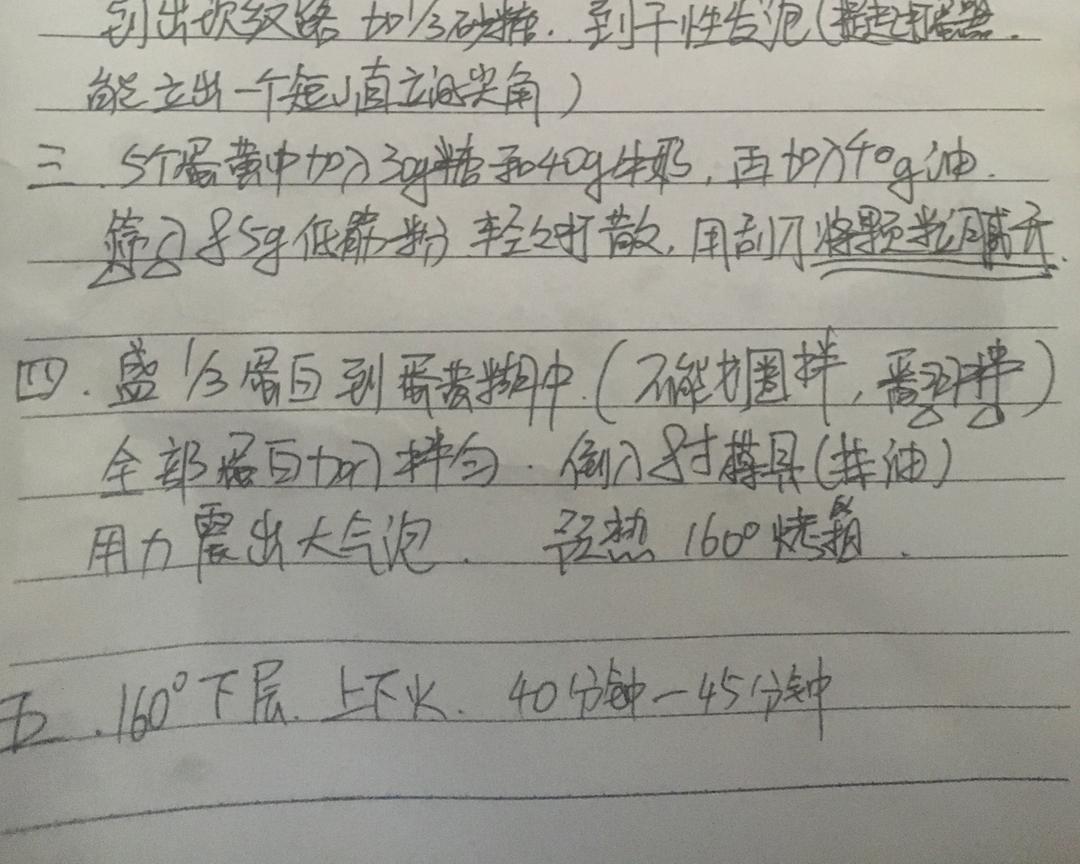 到出现纹路 加1/3砂糖. 到干性发泡(提起打蛋器.
能立出一个短小直立的尖角)
三. 5个蛋黄中加入30g糖和40g牛奶, 再加入40g油.
筛入85g低筋粉 轻轻打散, 用刮刀将颗粒碾开.
四. 盛1/3蛋白到蛋黄糊中.(不能打圈拌, 翻拌)
全部蛋白加入拌匀. 倒入8寸模具(抹油)
用力震出大气泡. 预热160°烤箱.
五. 160°下层. 上下火. 40分钟—45分钟